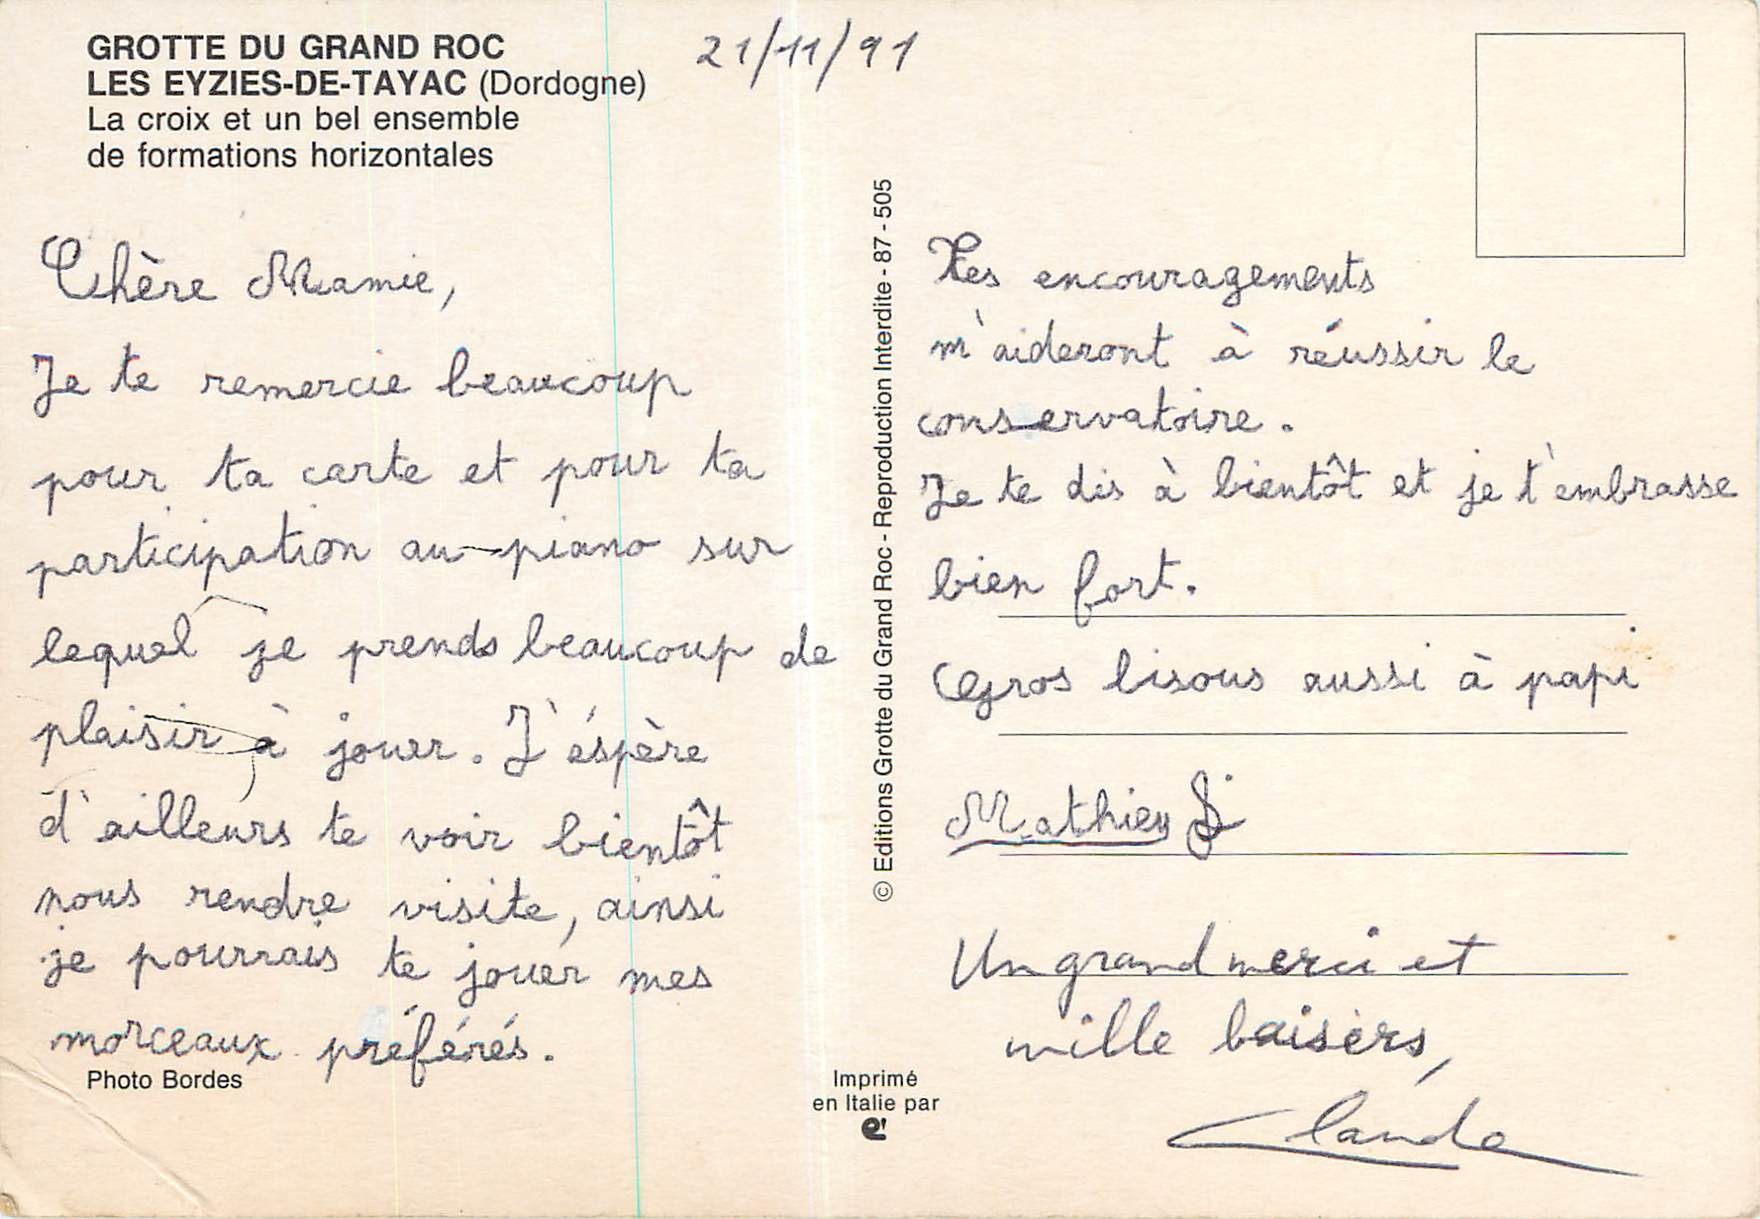 GROTTE DU GRAND ROC
LES EYZIES-DE-TAYAC (Dordogne)
La croix et un bel ensemble
de formations horizontales
21/11/91
Chère Mamie,
Je te remercie beaucoup
pour ta carte et pour ta
participation au piano sur
lequel je prends beaucoup de
plaisir à jouer. J'éspère
d'ailleurs te voir bientôt
nous rendre visite, ainsi
je pourrais te jouer mes
morceaux préférés.
Photo Bordes
© Editions Grotte du Grand Roc - Reproduction Interdite - 87 - 505
Imprimé
en Italie par
Tes encouragements
m'aideront à réussir le
conservatoire.
Je te dis à bientôt et je t'embrasse
bien fort.
Gros bisous aussi à papi
Mathieu
Un grand merci et
mille baisers,
Claude